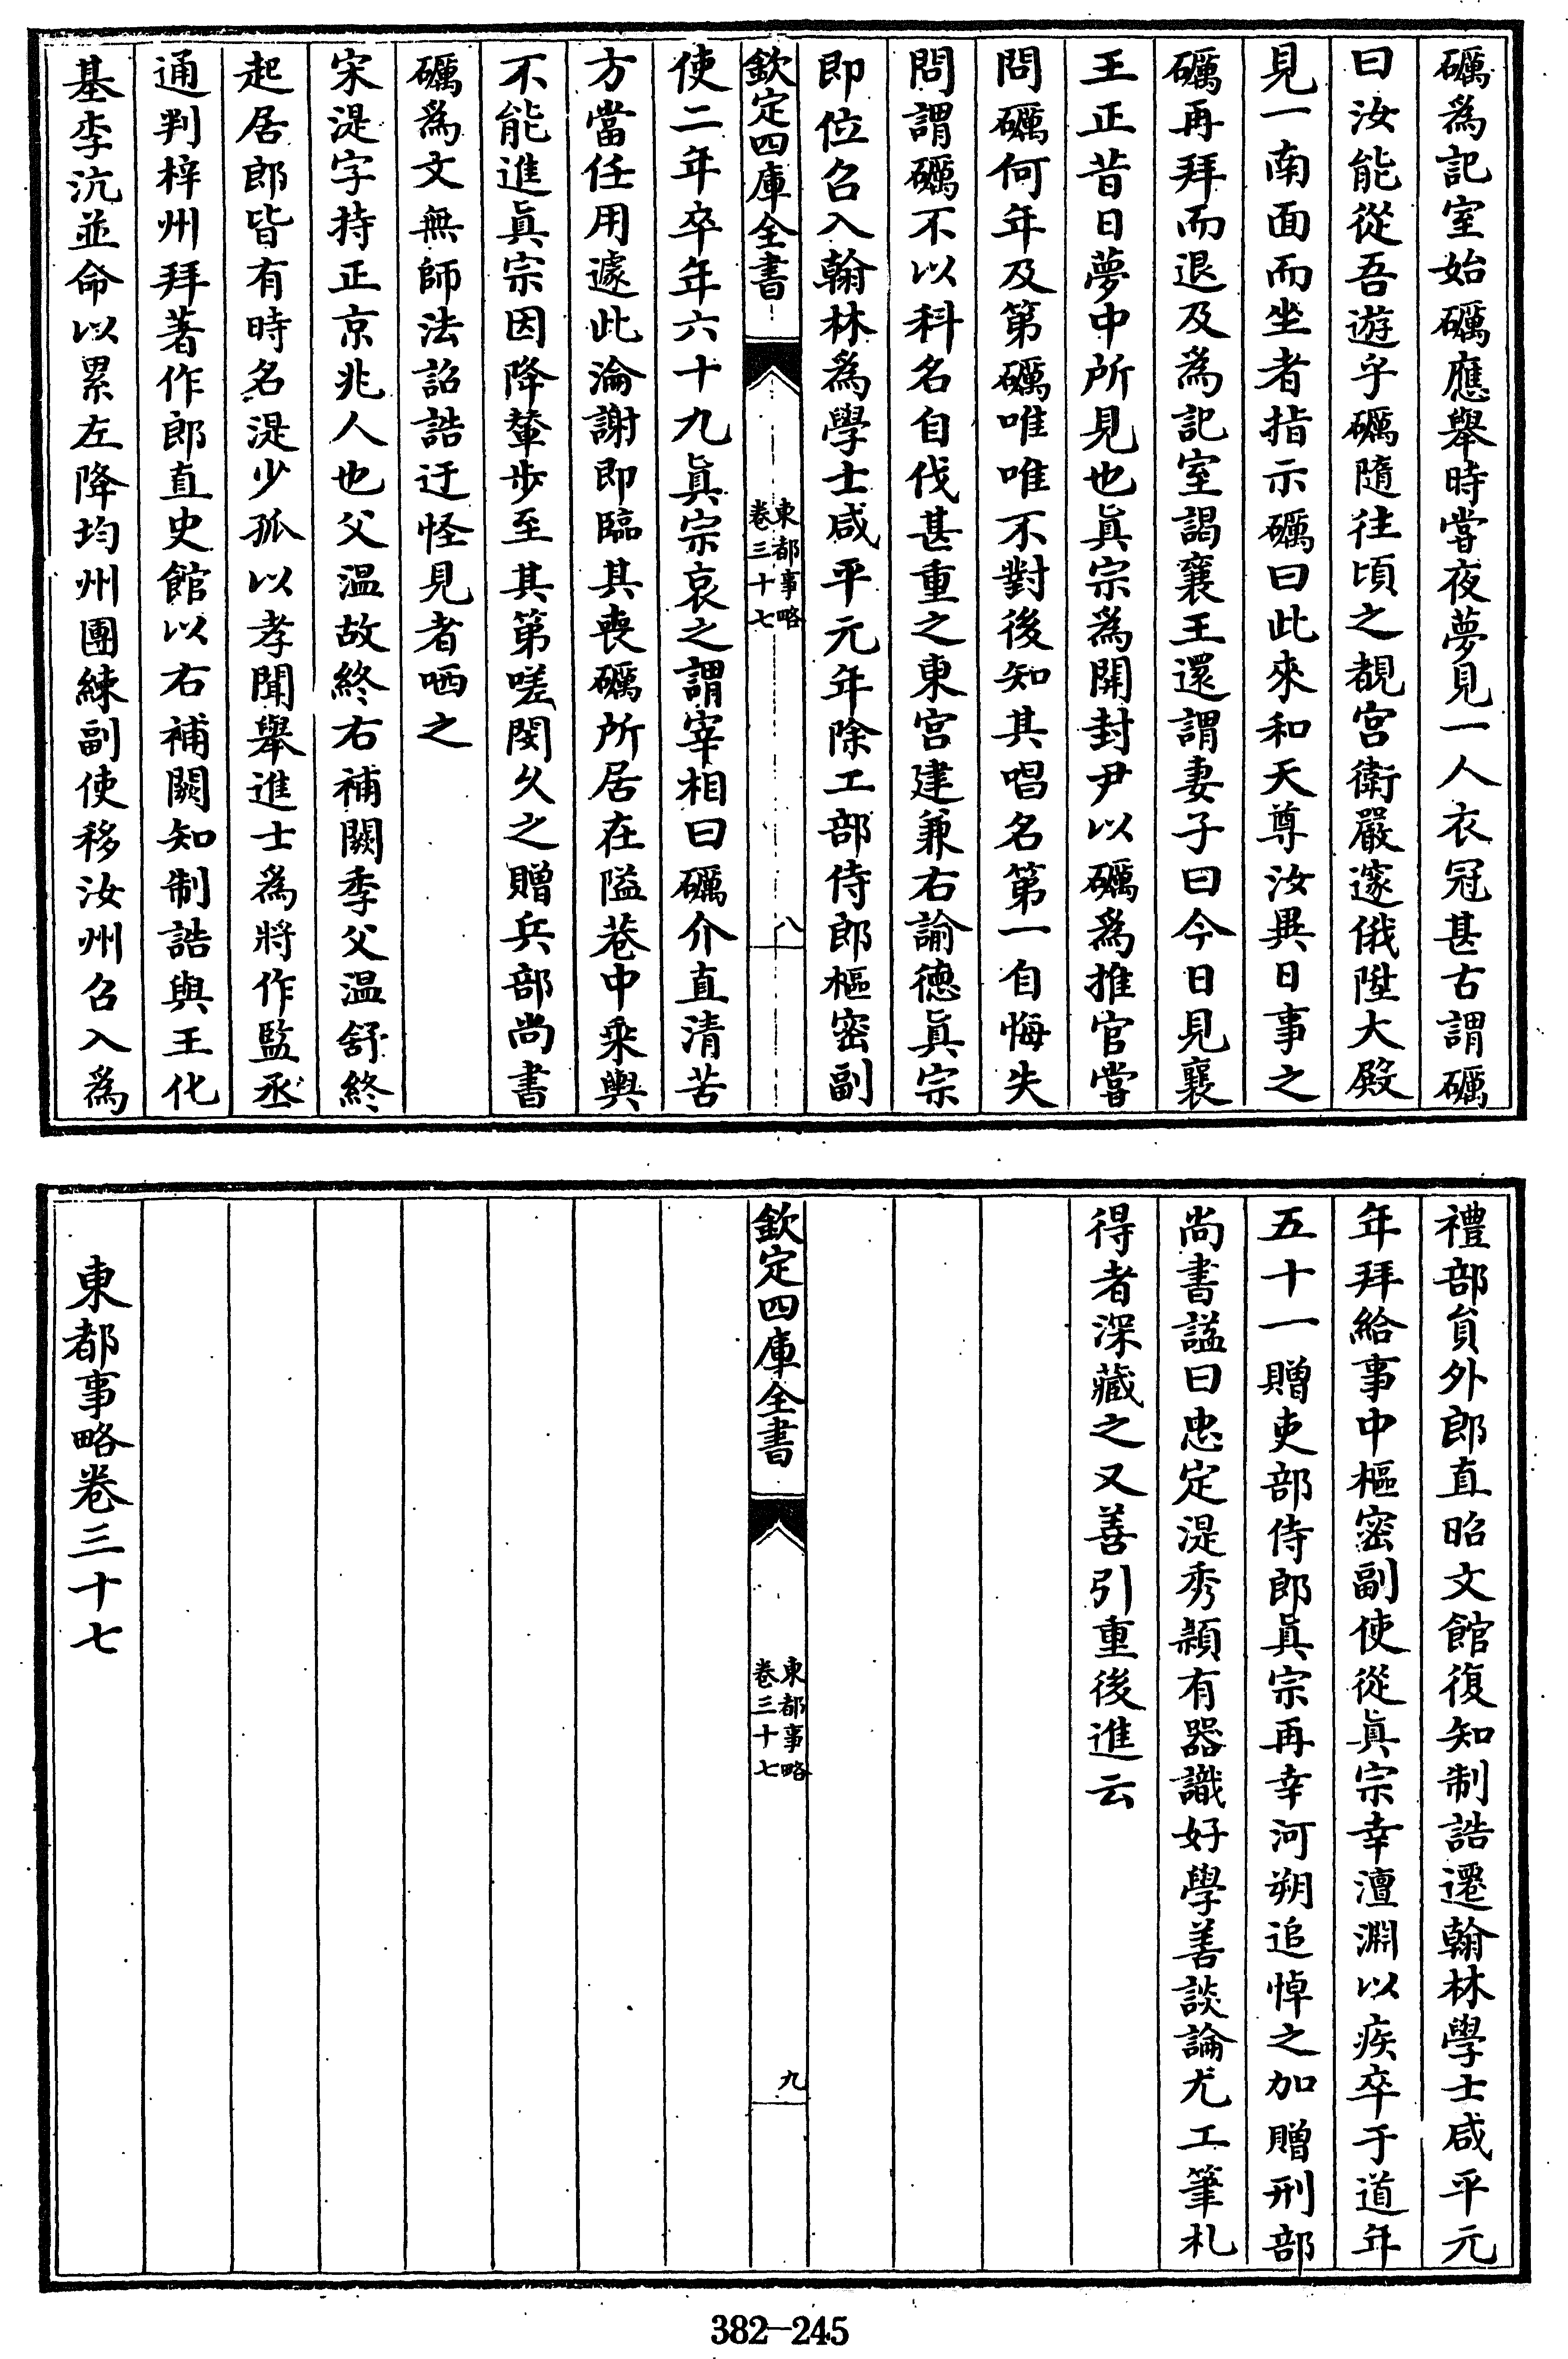 礪爲記室始礪應舉時嘗夜夢見一人衣冠甚古謂礪
曰汝能從吾遊乎礪隨往頃之覩宫衛嚴邃俄陞大殿
見一南面而坐者指示礪曰此來和天尊汝異日事之
礪再拜而退及爲記室謁襄王還謂妻子曰今日見襄
王正昔日夢中所見也眞宗爲開封尹以礪爲推官嘗
問礪何年及第礪唯唯不對後知其唱名第一自悔失
問謂礪不以科名自伐甚重之東宫建兼右諭德眞宗
即位召入翰林爲學士咸平元年除工部侍郎樞密副
欽定四庫全書
東都事略
卷三十七
八
使二年卒年六十九眞宗哀之謂宰相曰礪介直清苦
方當任用遽此淪謝即臨其喪礪所居在隘巷中乘輿
不能進眞宗因降輦步至其第嗟閔久之贈兵部尚書
礪爲文無師法詔誥迂怪見者哂之
宋湜字持正京兆人也父温故終右補闕季父温舒終
起居郎皆有時名湜少孤以孝聞舉進士爲將作監丞
通判梓州拜著作郎直史館以右補闕知制誥與王化
基李沆並命以累左降均州團練副使移汝州召入爲
禮部員外郎直昭文館復知制誥遷翰林學士咸平元
年拜給事中樞密副使從眞宗幸澶淵以疾卒于道年
五十一贈吏部侍郎眞宗再幸河朔追悼之加贈刑部
尚書諡曰忠定湜秀頴有器識好學善談論尤工筆札
得者深藏之又善引重後進云
欽定四庫全書
東都事略
卷三十七
九
東都事略卷三十七
382-245